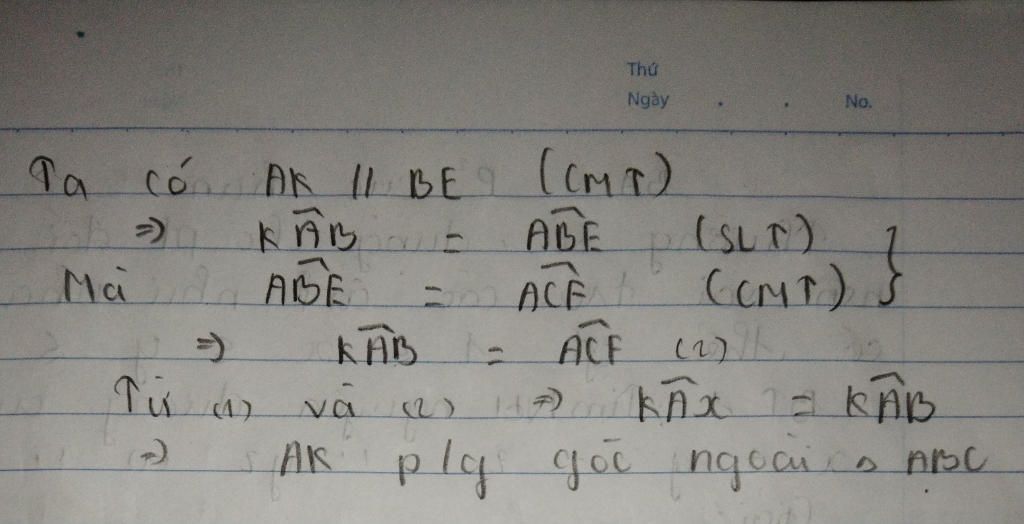 Thứ
Ngày . . No.
Ta có AK // BE (CMT)
=> KÂB = AB̂E (SLT) }
Mà AB̂E = AĈF (CMT)
=> KÂB = AĈF (2)
Từ (1) và (2) => KÂx = KÂB
=> AK p/g góc ngoài △ ABC